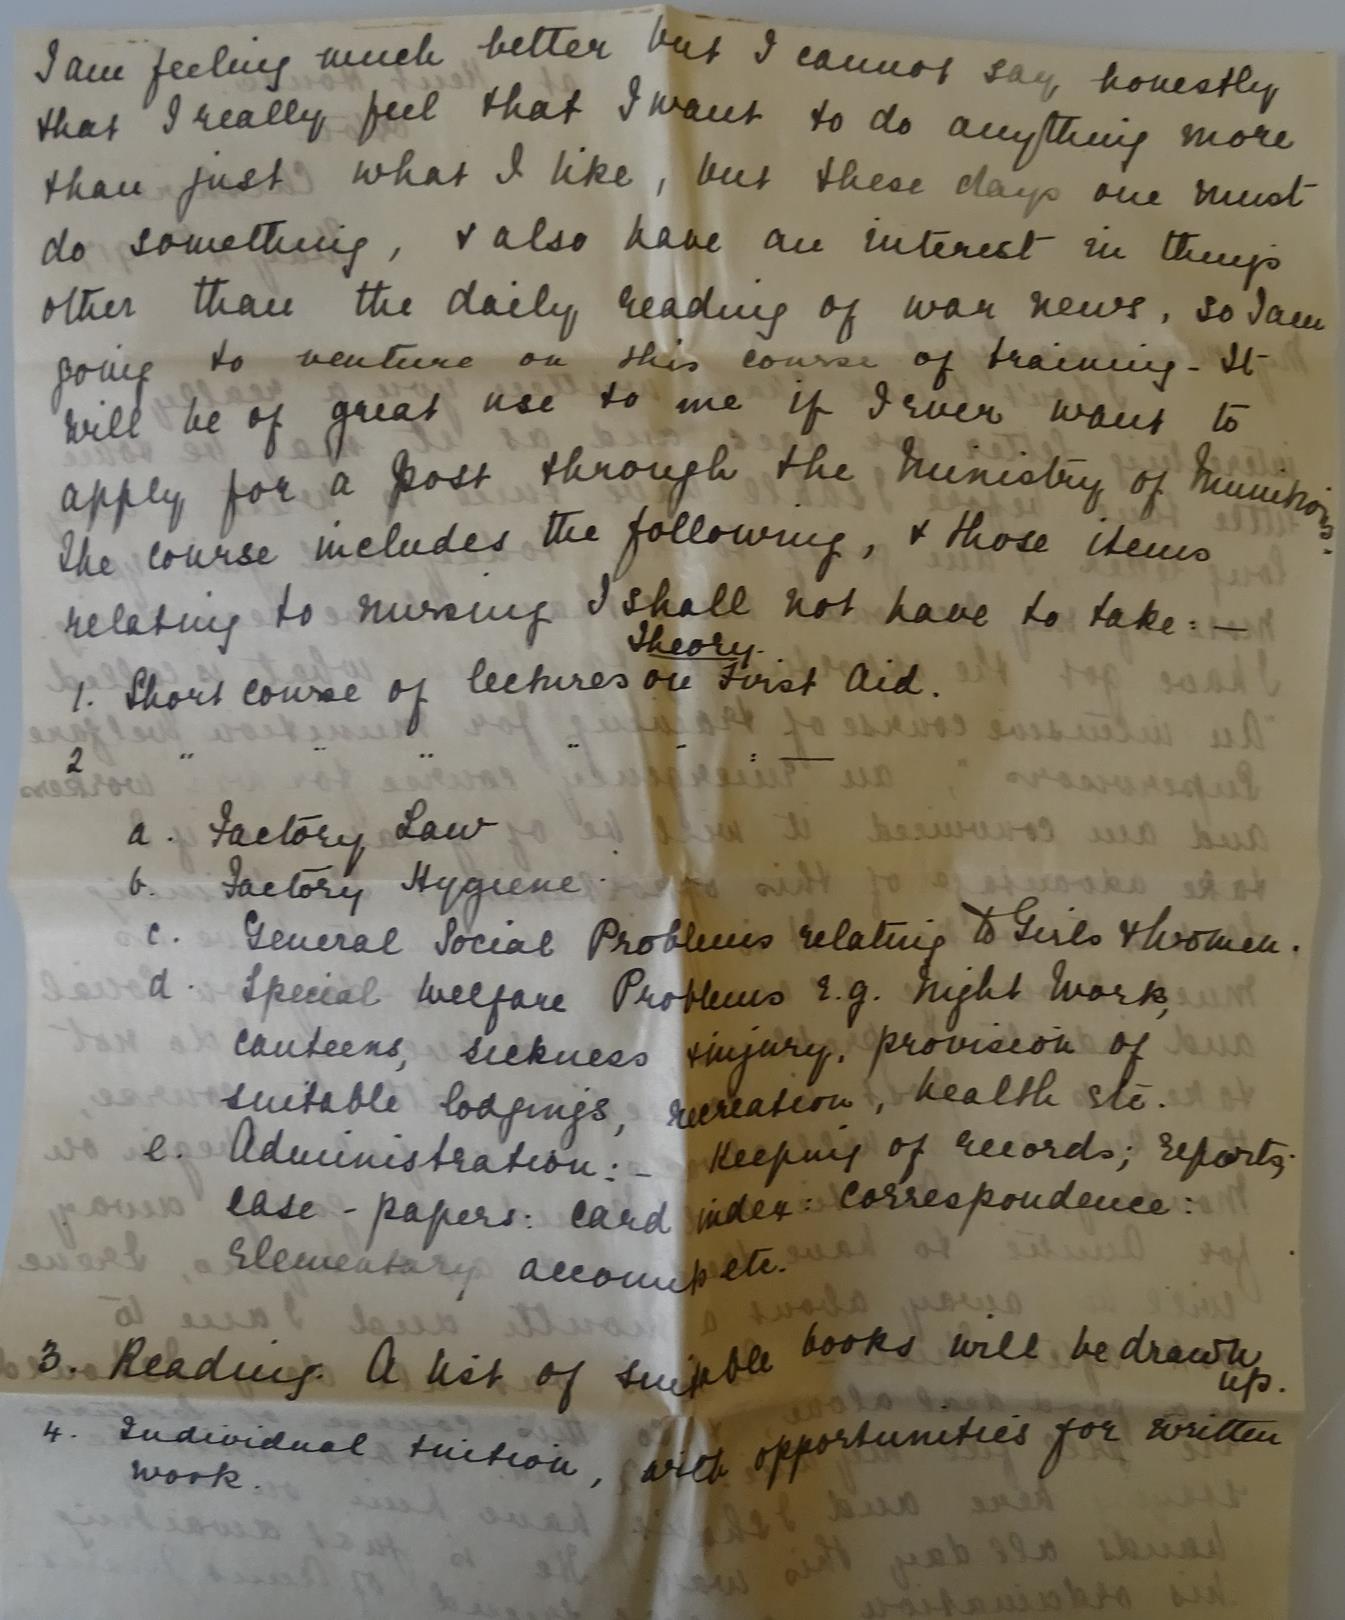 I am feeling much better but I cannot say honestly
that I really feel that I want to do anything more
than just what I like, but these days one must
do something, & also have an interest in things
other than the daily reading of war news, so I am
going to venture on this course of training - It
will be of great use to me if I ever want to
apply for a post through the Ministry of Munitions.
The course includes the following, & those items
relating to nursing I shall not have to take: —
Theory.
1. Short course of lectures on First Aid.
2 " " " " " : —
a. Factory Law
b. Factory Hygiene.
c. General Social Problems relating to Girls & Women.
d. Special Welfare Problems E.g. Night Work,
canteens, sickness & injury, provision of
suitable lodgings, recreation, health etc.
e. Administration: - Keeping of records; reports;
case-papers: card index: correspondence:
Elementary accounts etc.
3. Reading. A list of suitable books will be drawn
up.
4. Individual tuition, with opportunities for written
work.